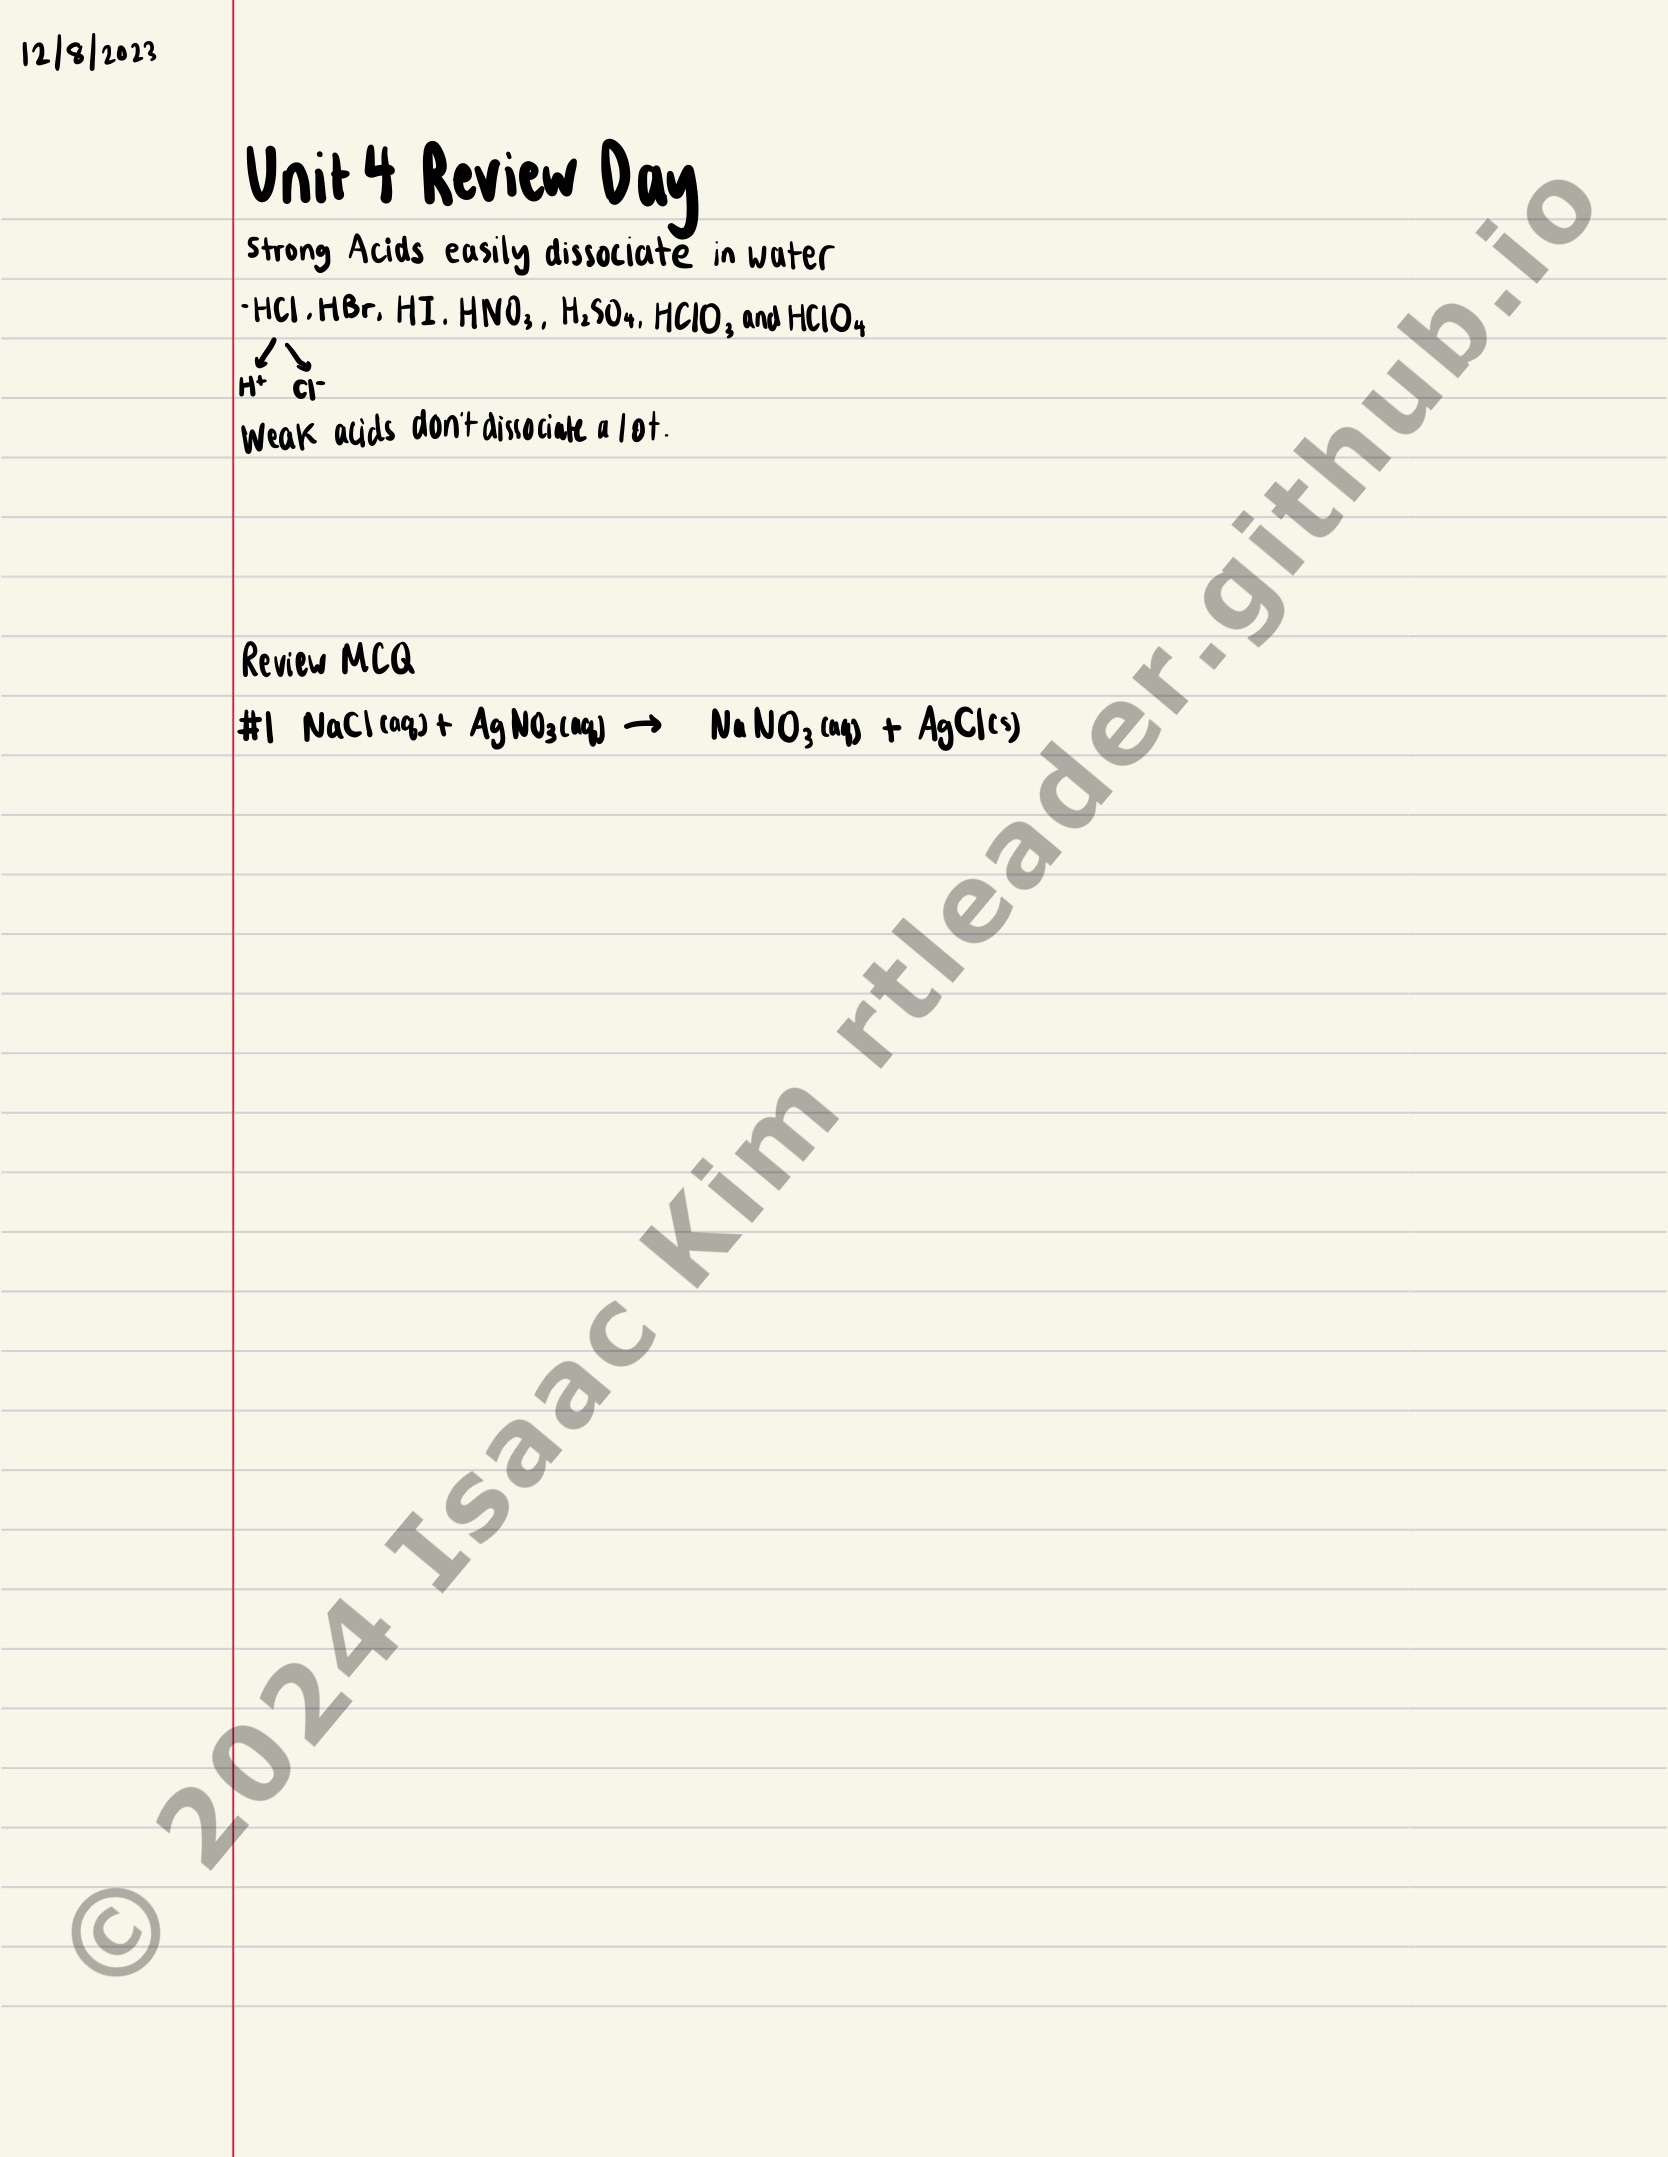 12/8/2023
Unit 4 Review Day
Strong Acids easily dissociate in water
-HCl, HBr, HI, HNO₃, H₂SO₄, HClO₃ and HClO₄
H⁺ Cl⁻
Weak acids don't dissociate a lot.
Review MCQ
#1 NaCl(aq) + AgNO₃(aq) → NaNO₃(aq) + AgCl(s)
© 2024 Isaac Kim rtleader.github.io